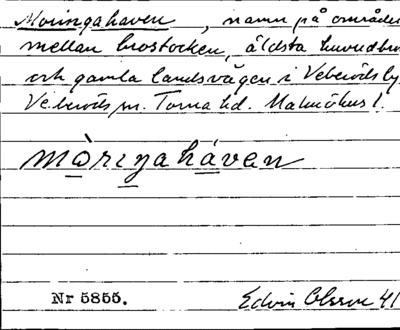 Moringahaven, namn på område
mellan brostocken, äldsta huvudbr
och gamla landsvägen i Veberöds by
Veberöds sn. Torna hd. Malmöhus l.
mòrıŋaháven
Nr 5855. Edvin Olsson 41